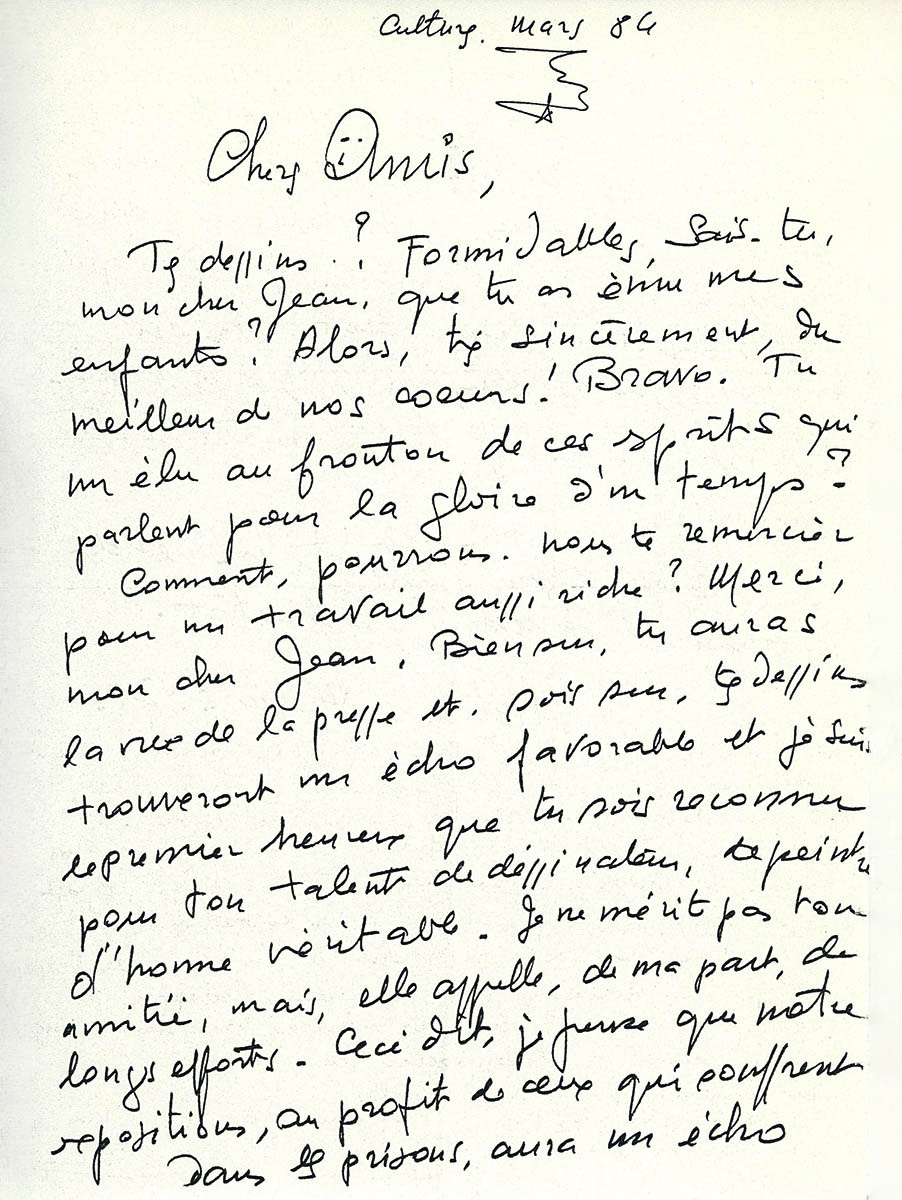 Culture. mars 84
Chers Amis,
Tes dessins ? Formidables, Sais-tu,
mon cher Jean, que tu as ému mes
enfants ? Alors, très sincèrement, du
meilleur de nos coeurs ! Bravo. Tu
un élu au fronton de ces esprits qui
parlent pour la gloire d'un temps ?
Comment, pourrons-nous te remercier
pour un travail aussi riche ? Merci,
mon cher Jean. Bien sur, tu auras
la de la presse et, sois sur, tes dessins
trouveront un écho favorable et je suis
le premier heureux que tu sois reconnu
pour ton talent de dessinateur, de peintre
d'homme véritable. Je ne mérit pas ton
amitié, mais, elle appelle, de ma part, de
longs efforts. Ceci dit, je pense que notre
expositions, au profit de ceux qui souffrent
dans les prisons, aura un écho